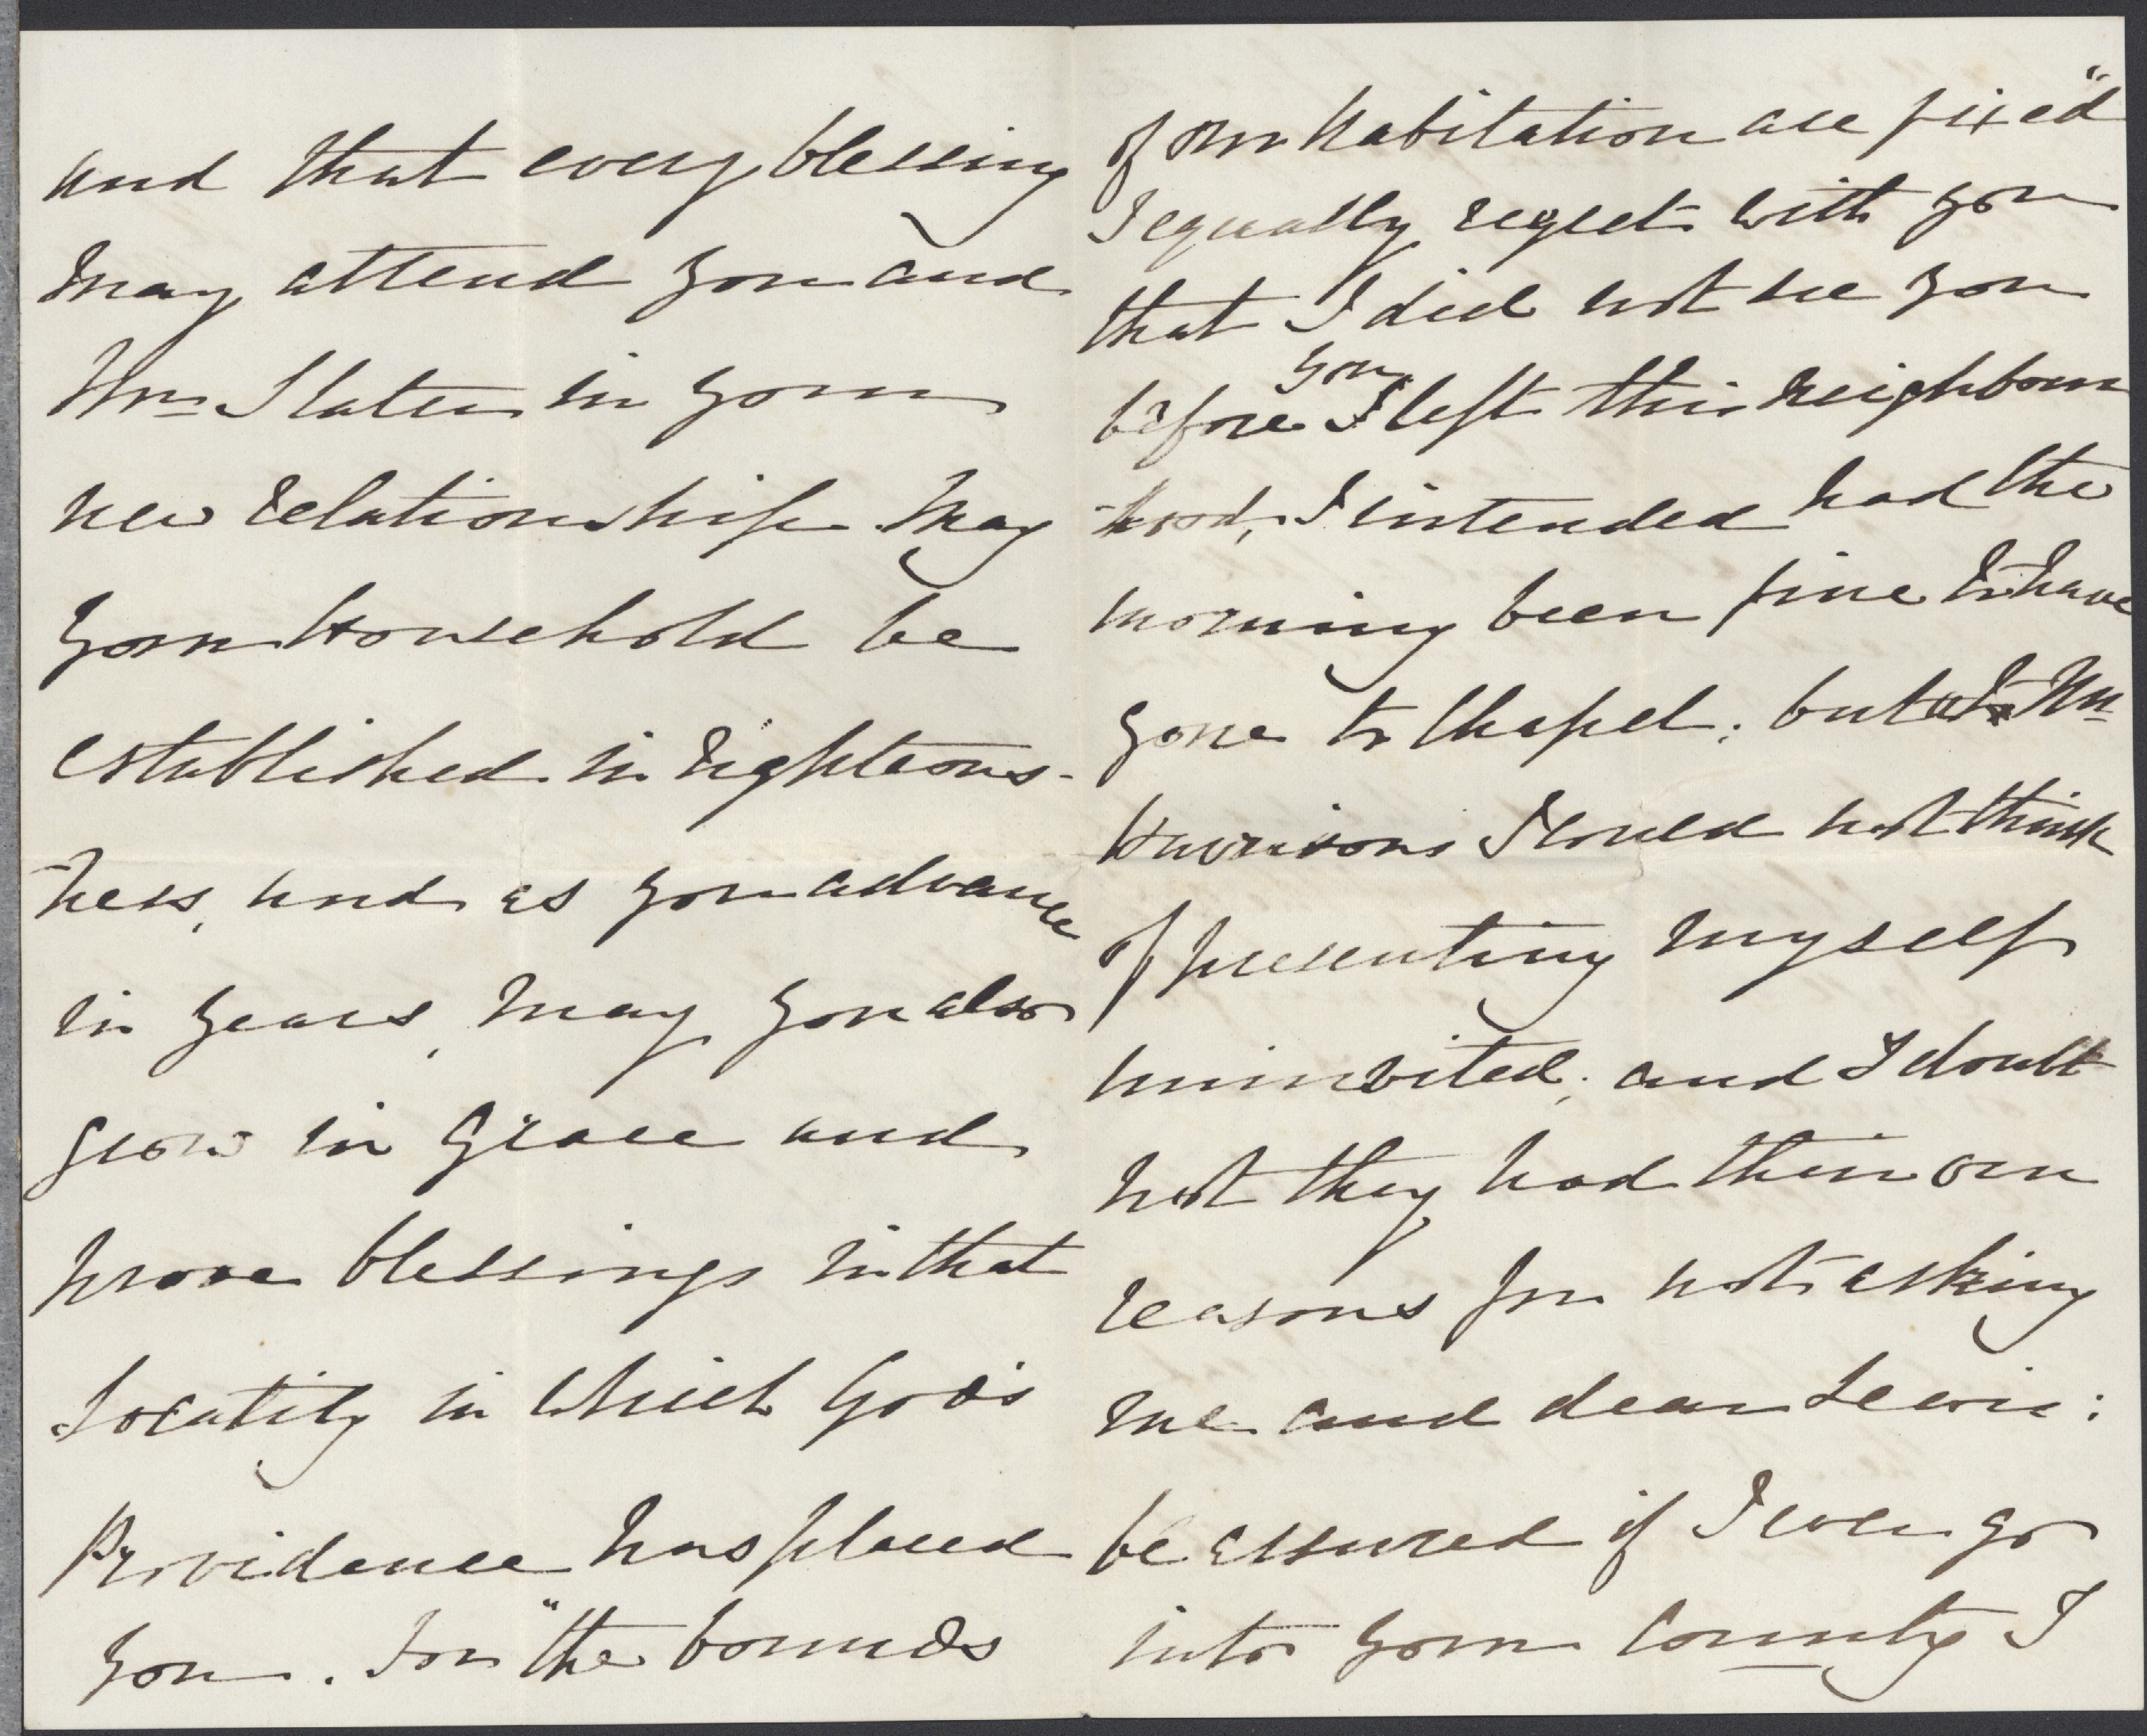 and that every blessing
may attend you and
Mrs Slater in your
new relationship. May
your Household be
established in righteous-
ness, and as you advance
in years, may you also
grow in Grace and
prove blessings in that
Locality in which God's
Providence has placed
you. For "the bounds
of our habitation are fixed"
I equally regret with you
that I did not see you
before you I left this neighbour
-hood, I intended had the
morning been fine to have
gone to Chapel; but at Mr
Harrisons I could not think
of presenting myself
uninvited; and I doubt
not they had their own
reasons for not asking
me and dear Lewis:
be assured if I ever go
into your County I